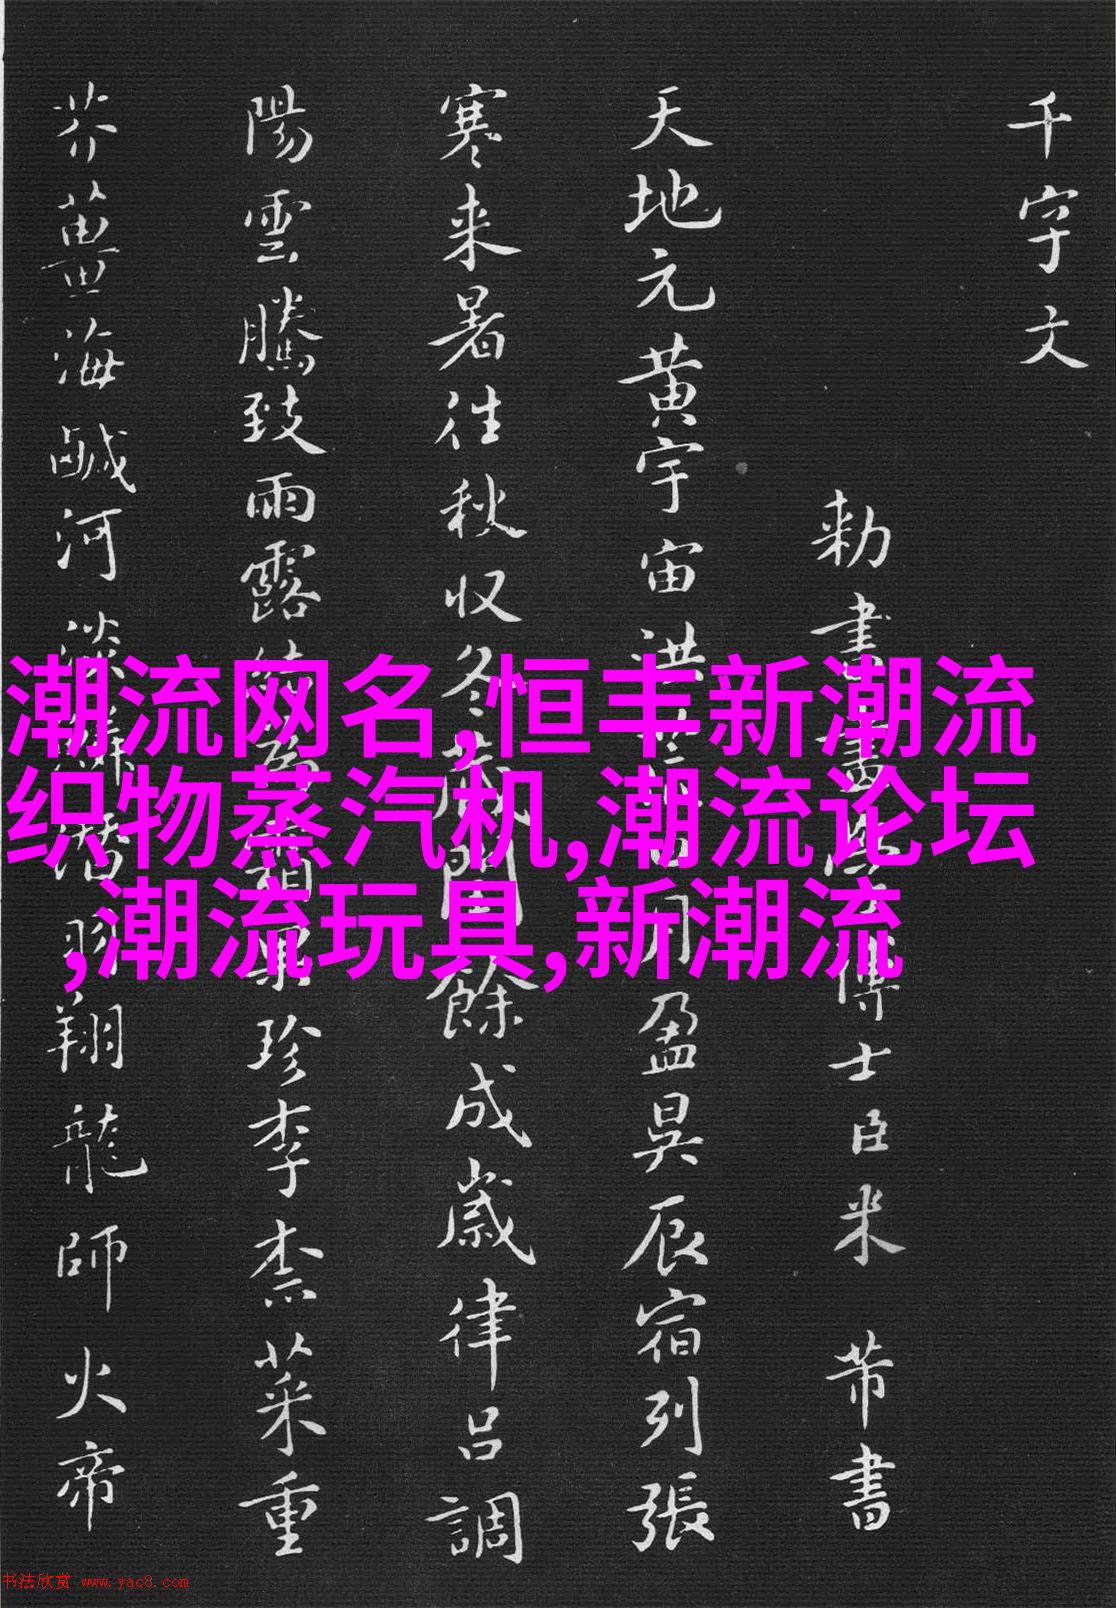 千字文
勅書畫學博士臣米芾書
天地元黄宇宙洪荒日月盈昃辰宿列張
寒来暑往秋収冬藏閏餘成歲律吕調
陽雲騰致雨露結為霜果珍李柰菜重
芥薑海鹹河淡鱗潛羽翔龍師火帝
潮流网名,恒丰新潮流
织物蒸汽机,潮流论坛
,潮流玩具,新潮流
书法欣赏 www.yac8.com